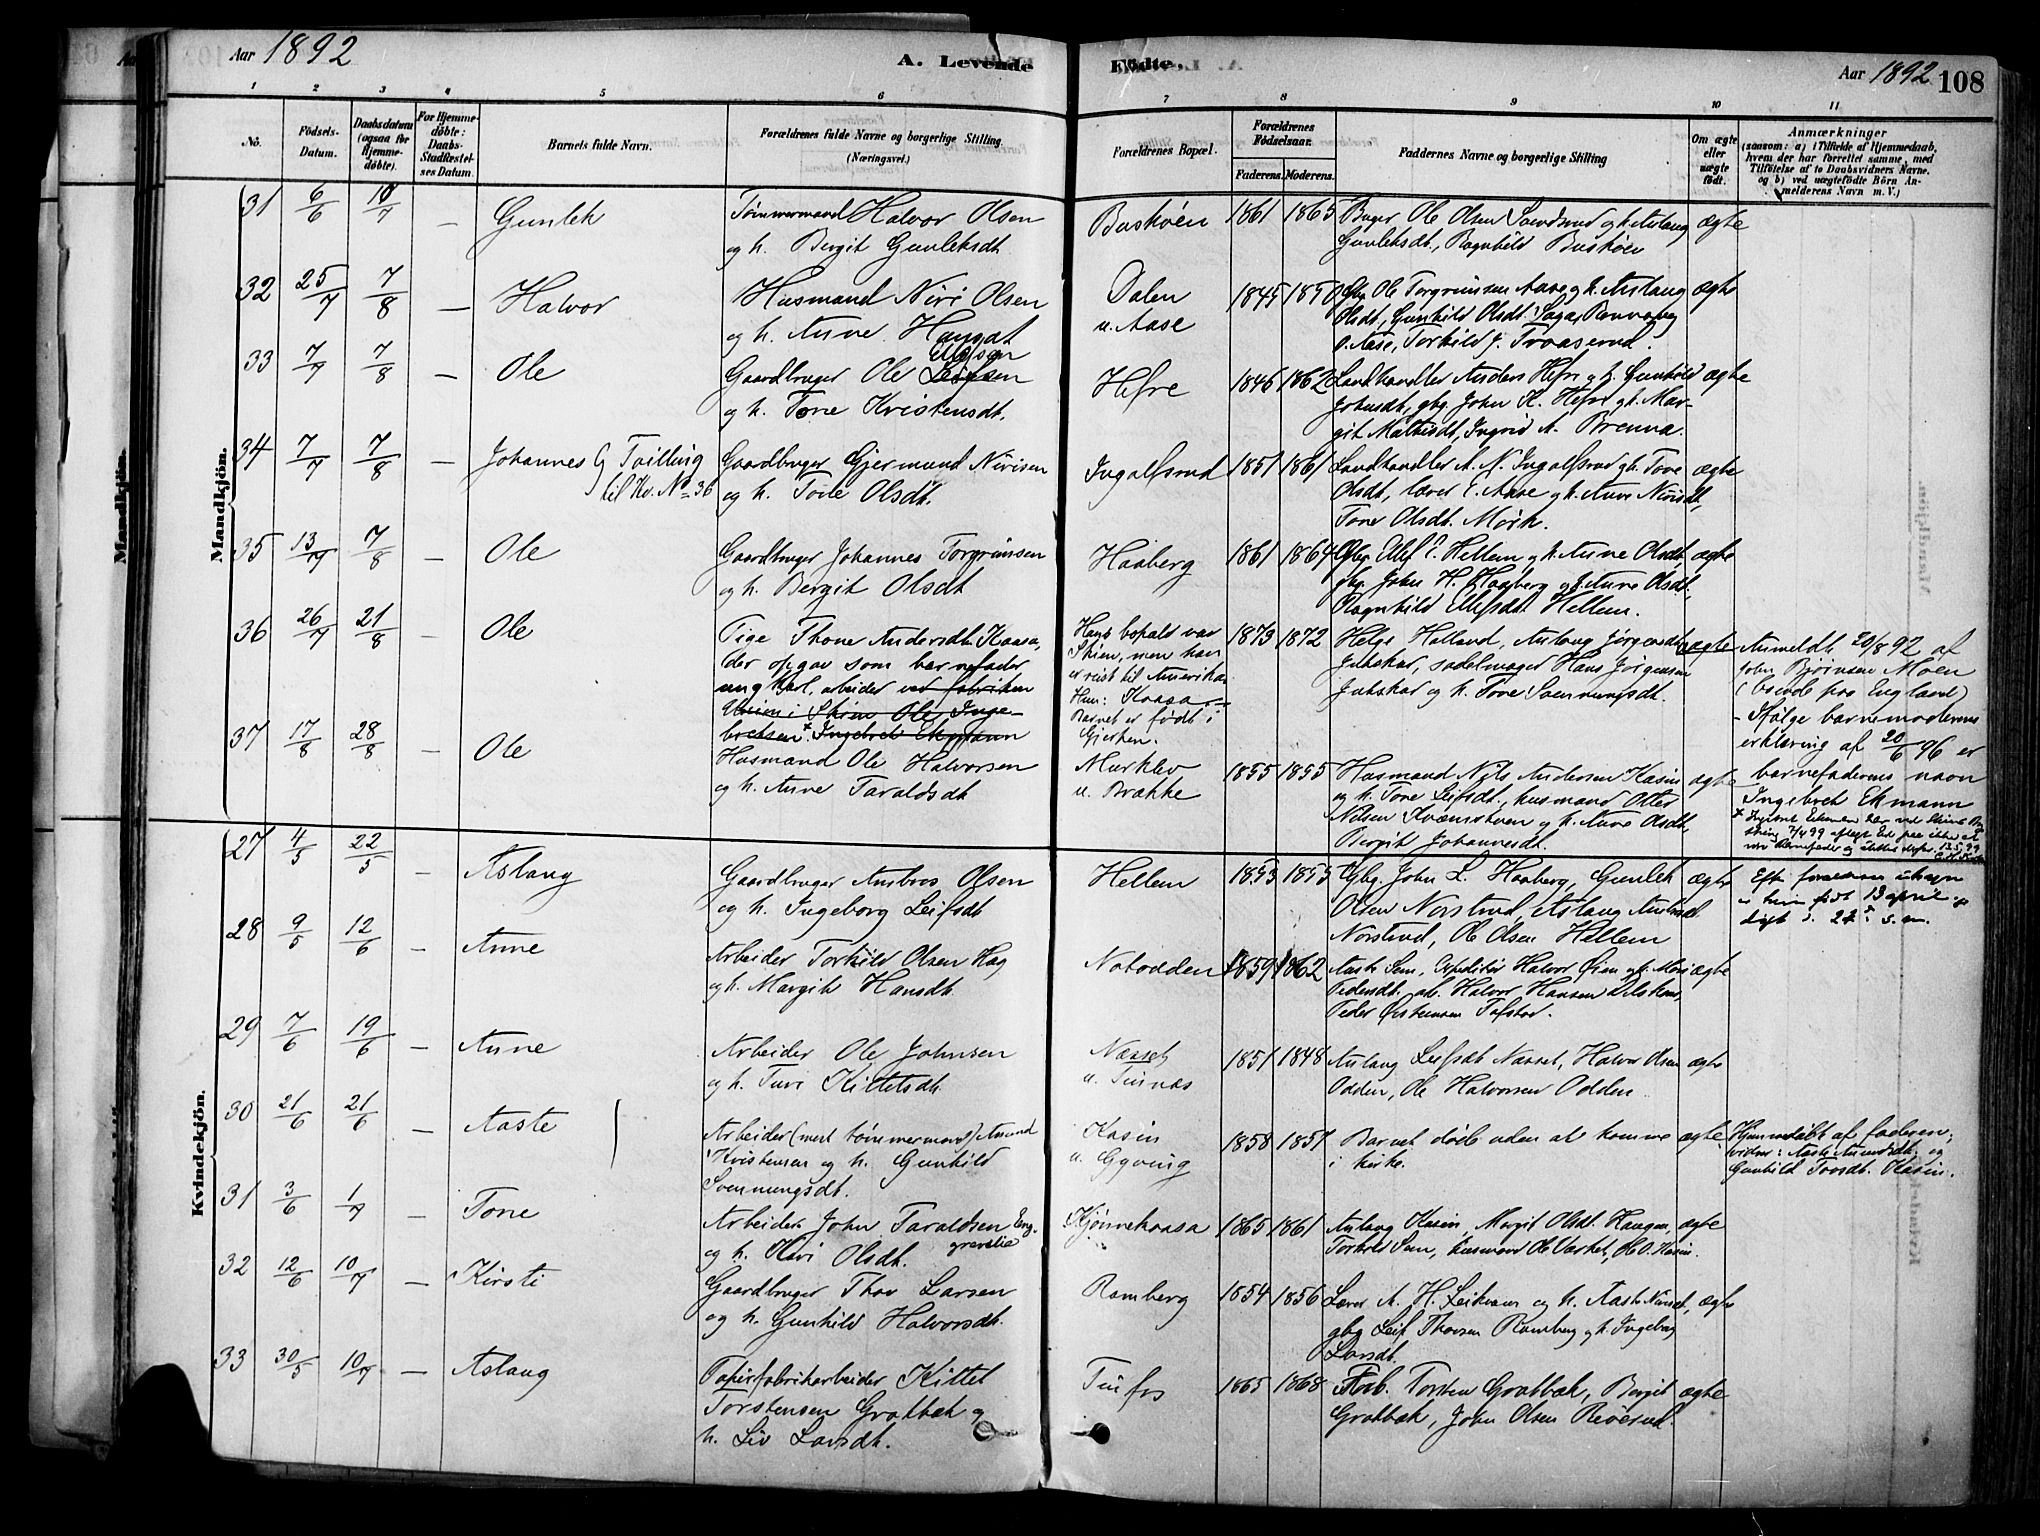 Aar 1892
A. Levende Födte.
Aar 1892 108
1 2 3 4 5 6 7 8 9 10 11
No.
Födsels-Datum.
Daabsdatum (ogsaa for Hjemme-döbte).
For Hjemme-döbte: Daabs-Stadfæstel-ses Datum.
Barnets fulde Navn.
Forældrenes fulde Navne og borgerlige Stilling (Næringsvei.)
Forældrenes Bopæl.
Forældrenes Födselsaar.
Faderens. Moderens.
Faddernes Navne og borgerlige Stilling
Om ægte eller uægte födt.
Anmærkninger
(saasom: a) i Tilfælde af Hjemmedaab,
hvem der har forrettet samme, med
Tilföielse af to Daabsvidners Navne.
og b) ved uægtefödte Börn An-
melderens Navn m. V.)
Mandkjön.
31 6/6 10/7 — Gunlek
Tømmermand Halvor Olsen
og h. Bergit Gunleksdt.
Buskøen 1861 1865
Ole Olsen Sandsrud og h. Aslaug
Gunleksdt., Ragnhild Buskøen
ægte
32 25/7 7/8 — Halvor
Husmand Niri Olsen
og h. Anne
Dalen
u. Aase
1845 1850
Gbr. Ole Torgrimsen Aase og h. Aslaug
Olsdt, Gunhild Olsdt.
Aase, Torkild J. Traaserud.
ægte
33 7/7 7/8 — Ole
Gaardbruger Ole
og h. Tone Kristensdt.
Hefre 1846 1862
Landhandler Anders Hefre og h. Gunhild
Johnsdt, gbg. John K. Hefre og h. Mar-
git Mathisdt, Ingrid A. Brenna.
ægte
34 7/7 7/8 — Johannes Tvilling
til Kv. No 36
Gaardbruger Gjermund Nirisen
og h. Tone Olsdt.
Ingolfsrud 1851 1861
Landhandler A. N. Ingolfsrud og h. Tove
Olsdt, lærer E. Aase og h. Anne Nirisdt,
Tone Olsdt. Mørk.
ægte
35 13/7 7/8 — Ole
Gaardbruger Johannes Torgrimsen
og h. Bergit Olsdt
Haaberg 1861 1864
Gbg. Ellef E. Hellem og h. Anne Olsdt.
gbg. John H. Haaberg og h. Anne Olsdt,
Ragnhild Ellefsdt. Hellem.
ægte
36 26/7 21/8 — Ole
Pige Thone Andersdt. Kaasa,
der opgav som barnefader
ungkarl, arbeider ved fabriken
Union i Skien Ole Inge-
bretsen x Ingebret Ekmann
Hans bopæl var
Skien, men han
er reist til Amerika.
Hun: Kaasa.
Barnet er født i
Gjerpen.
1873 1872
Helge Holland, Aslaug Jørgensdt.
Jutskar, sadelmager Hans Jørgensen
Jutskar og h. Tone Svennungsdt.
uægte
Anmeldt 20/8 92 af
John Bjørnsen Moen
(boende paa England)
- Ifølge barnemoderens
erklæring af 20/6 96 er
barnefaderens navn
Ingebret Ekmann
x Ingebret Ekmann har ved Skiens
7/4 99 aflagt Ed paa ikke at
være Barnefader og slettes derfor. 13.5.99
37 17/8 28/8 — Ole
Husmand Ole Halvorsen
og h. Anne Taraldsdt
Murklev
u. Brække
1855 1855
Husmand Nils Andersen Kasin
og h. Tone Leifsdt., husmand Otter
Nilsen Kvernstuen og h. Anne Olsdt,
Bergit Johannesdt.
ægte
Kvindekjön.
27 4/5 22/5 — Aslaug
Gaardbruger Ambros Olsen
og h. Ingeborg Leifsdt
Hellem 1853 1853
Gbg. John L. Haaberg, Gunlek
Olsen Norstrud, Aslaug
Norstrud, Ole Olsen Hellem
ægte
Eft. forældrenes udsagn
er hun født 13 april og
døpt d. 22 s. m.
28 9/5 12/6 — Anne
Arbeider Torkild Olsen Hag
og h. Margit Hansdt.
Notodden 1859 1862
Aaste Sem, Expeditør Halvor Øien og h. Mari
Pedersdt. arb. Halvor Hansen
Peder Østensen Tofstad.
ægte
29 7/6 19/6 — Anne
Arbeider Ole Johnsen
og h. Turi Kittelsdt.
Næsset
u. Tinnæs
1851 1848
Aslaug Leifsdt. Næsset, Halvor Olsen
Odden, Ole Halvorsen Odden.
ægte
30 21/6 21/6 — Aaste
Arbeider (mest tømmermand) Amund
Kristensen og h. Gunhild
Svennungsdt.
Kasin
u. Gyving
1858 1857
Barnet døde uden at komme
i kirke.
ægte
Hjemmedøbt af faderen;
vidner: Aaste Amundsdt. og
Gunhild Torsdt. Kasin.
31 3/6 1/7 — Tone
Arbeider John Taraldsen Eng-
gravslie
og h. Kari Olsdt.
Kjønnekaasa 1865 1861
Aslaug Kasin, Margit Olsdt. Haugen,
Torkild Sem, husmand Ole
ægte
32 12/6 10/7 — Kirsti
Gaardbruger Thov Larsen
og h. Gunhild Halvorsdt.
Romberg 1854 1856
Lærer A. H. Leikvam og h. Aaste Nirisdt,
gbg Leif Thovsen Romberg og h. Ingeborg
Larsdt.
ægte
33 30/5 10/7 — Aslaug
Papirfabrikarbeider Kittel
Torstensen Gratbæk og
h. Liv Larsdt.
Tinfos 1865 1868
Torsten Gratbæk, Bergit
Gratbæk, John Olsen
ægte